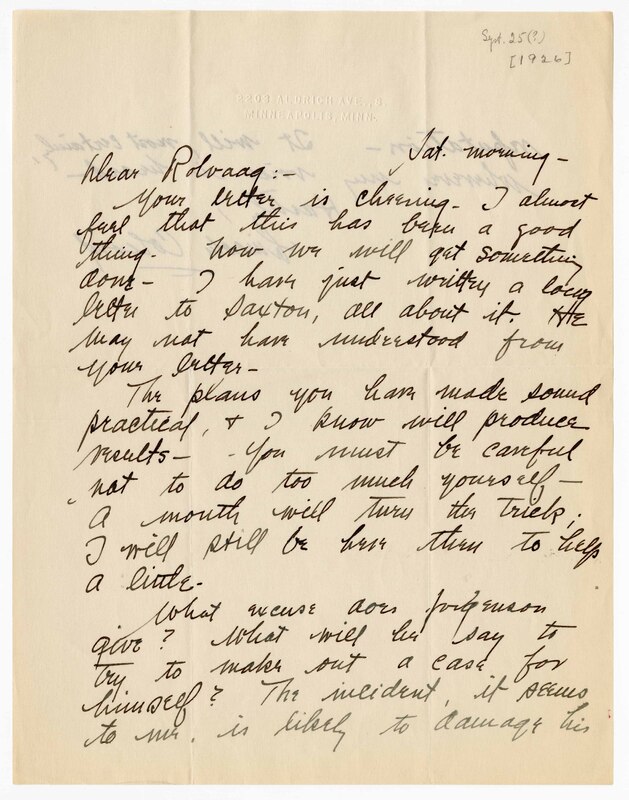 Sept. 25(?)
[1926]
2203 ALDRICH AVE., S.
MINNEAPOLIS, MINN.
Sat. morning –
Dear Rolvaag:–
Your letter is cheering. I almost
feel that this has been a good
thing. Now we will get something
done – I have just written a long
letter to Saxton, all about it. He
may not have understood from
your letter –
The plans you have made sound
practical, & I know will produce
results – You must be careful
not to do too much yourself –
A month will turn the trick;
I will still be here then to help
a little.
What excuse does Jorgenson
give? What will he say to
try to make out a case for
himself? The incident, it seems
to me, is likely to damage his